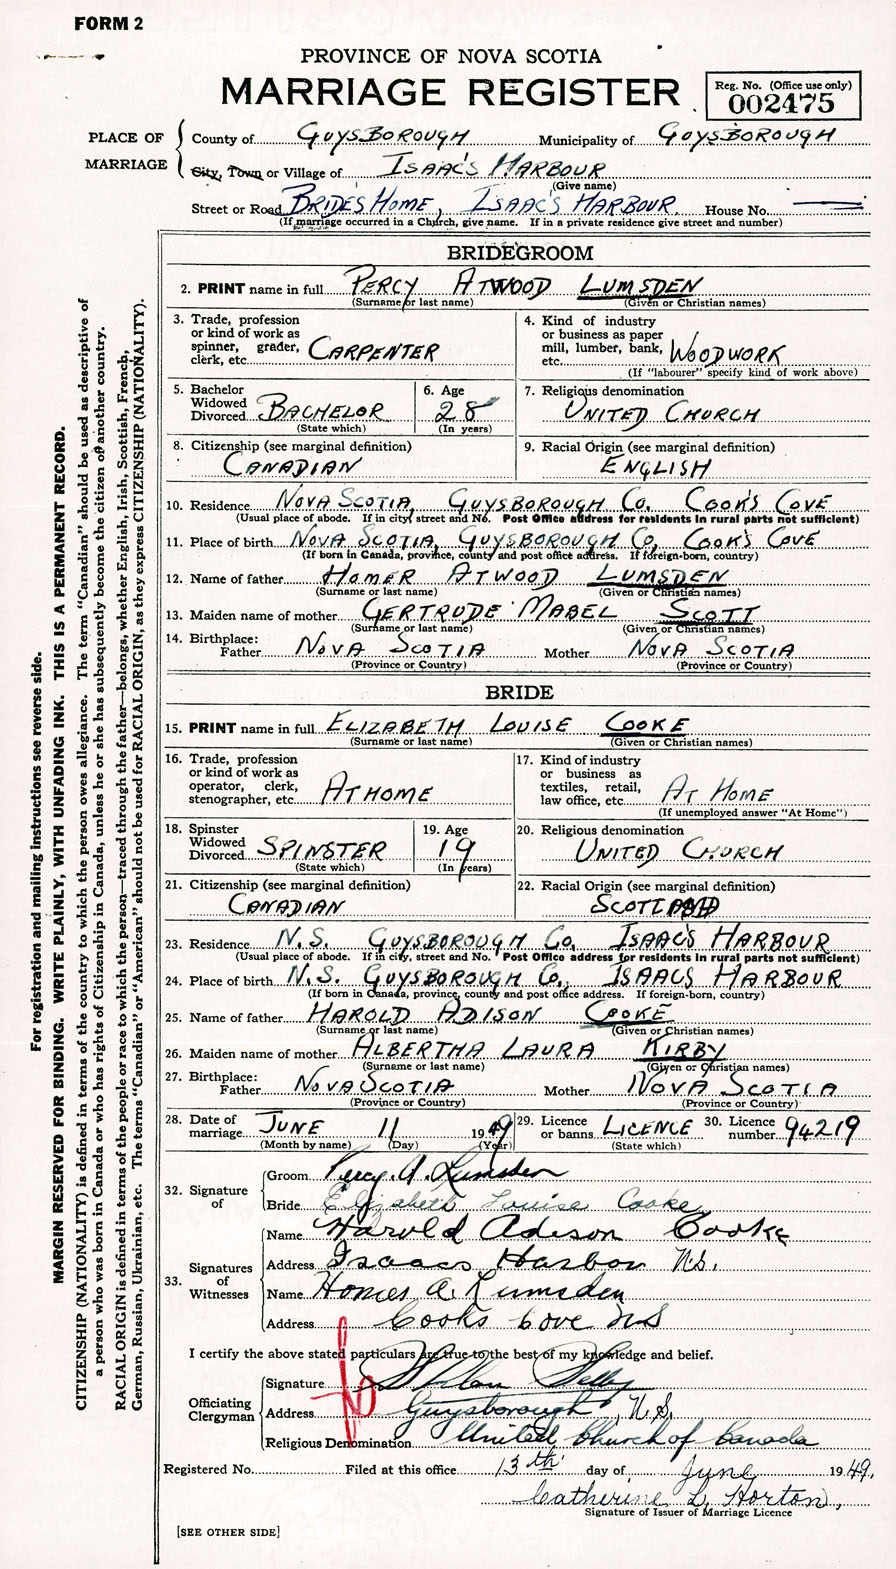 FORM 2
PROVINCE OF NOVA SCOTIA
MARRIAGE REGISTER
Reg. No. (Office use only)
002475
PLACE OF MARRIAGE
County of GUYSBOROUGH Municipality of GUYSBOROUGH
City, Town or Village of ISAAC'S HARBOUR
(Give name)
Street or Road BRIDE'S HOME, ISAAC'S HARBOUR. House No.
(If marriage occurred in a Church, give name. If in a private residence give street and number)
BRIDEGROOM
2. PRINT name in full PERCY ATWOOD LUMSDEN
(Surname or last name) (Given or Christian names)
3. Trade, profession or kind of work as spinner, grader, clerk, etc. CARPENTER
4. Kind of industry or business as paper mill, lumber, bank, etc. WOODWORK
(If "labourer" specify kind of work above)
5. Bachelor Widowed Divorced BACHELOR
(State which)
6. Age 28
(In years)
7. Religious denomination
UNITED CHURCH
8. Citizenship (see marginal definition)
CANADIAN
9. Racial Origin (see marginal definition)
ENGLISH
10. Residence NOVA SCOTIA, GUYSBOROUGH CO. COOK'S COVE
(Usual place of abode. If in city street and No. Post Office address for residents in rural parts not sufficient)
11. Place of birth NOVA SCOTIA, GUYSBOROUGH CO, COOK'S COVE
(If born in Canada, province, county and post office address. If foreign-born, country)
12. Name of father HOMER ATWOOD LUMSDEN
(Surname or last name) (Given or Christian names)
13. Maiden name of mother GERTRUDE MABEL SCOTT
(Surname or last name) (Given or Christian names)
14. Birthplace:
Father NOVA SCOTIA Mother NOVA SCOTIA
(Province or Country) (Province or Country)
BRIDE
15. PRINT name in full ELIZABETH LOUISE COOKE
(Surname or last name) (Given or Christian names)
16. Trade, profession or kind of work as operator, clerk, stenographer, etc. AT HOME
17. Kind of industry or business as textiles, retail, law office, etc. AT HOME
(If unemployed answer "At Home")
18. Spinster Widowed Divorced SPINSTER
(State which)
19. Age 19
(In years)
20. Religious denomination
UNITED CHURCH
21. Citizenship (see marginal definition)
CANADIAN
22. Racial Origin (see marginal definition)
23. Residence N.S. GUYSBOROUGH CO. ISAAC'S HARBOUR
(Usual place of abode. If in city, street and No. Post Office address for residents in rural parts not sufficient)
24. Place of birth N.S. GUYSBOROUGH CO., ISAACS HARBOUR
(If born in Canada, province, county and post office address. If foreign-born, country)
25. Name of father HAROLD ADISON COOKE
(Surname or last name) (Given or Christian names)
26. Maiden name of mother ALBERTHA LAURA KIRBY
(Surname or last name) (Given or Christian names)
27. Birthplace:
Father NOVA SCOTIA Mother NOVA SCOTIA
(Province or Country) (Province or Country)
28. Date of marriage JUNE 11 1949
(Month by name) (Day) (Year)
29. Licence or banns LICENCE
(State which)
30. Licence number 94219
32. Signature of
Groom Percy A. Lumsden
Bride Elizabeth Louise Cooke
33. Signatures of Witnesses
Name Harold Adison Cooke
Address Isaacs Harbor N.S.
Name Homer A. Lumsden
Address Cooks Cove NS
I certify the above stated particulars are true to the best of my knowledge and belief.
Officiating Clergyman
Signature
Address Guysborough, N.S.
Religious Denomination United Church of Canada
Registered No. Filed at this office 13th day of June 1949.
Catherine L. Horton,
Signature of Issuer of Marriage Licence
[SEE OTHER SIDE]
For registration and mailing instructions see reverse side.
MARGIN RESERVED FOR BINDING. WRITE PLAINLY, WITH UNFADING INK. THIS IS A PERMANENT RECORD.
CITIZENSHIP (NATIONALITY) is defined in terms of the country to which the person owes allegiance. The term "Canadian" should be used as descriptive of
a person who was born in Canada or who has rights of Citizenship in Canada, unless he or she has subsequently become the citizen of another country.
RACIAL ORIGIN is defined in terms of the people or race to which the person—traced through the father—belongs, whether English, Irish, Scottish, French,
German, Russian, Ukrainian, etc. The terms "Canadian" or "American" should not be used for RACIAL ORIGIN, as they express CITIZENSHIP (NATIONALITY).